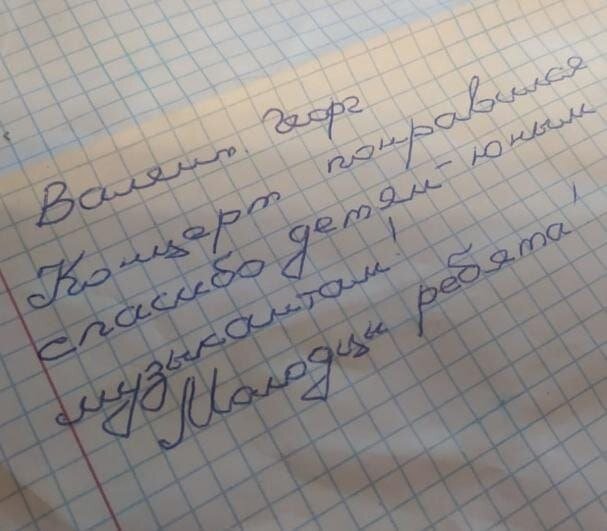 Валент. Георг
Концерт понравился
спасибо детям-юным
музыкантам!
Молодцы ребята!